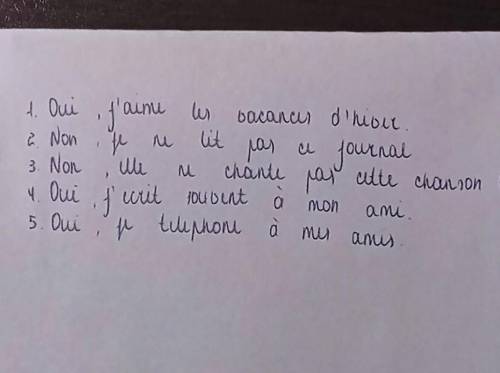 1. Oui, j'aime les vacances d'hiver.
2. Non, je ne lit pas ce journal
3. Non, elle ne chante pas cette chanson
4. Oui, j'ecrit souvent à mon ami.
5. Oui, je telephone à mes amis.